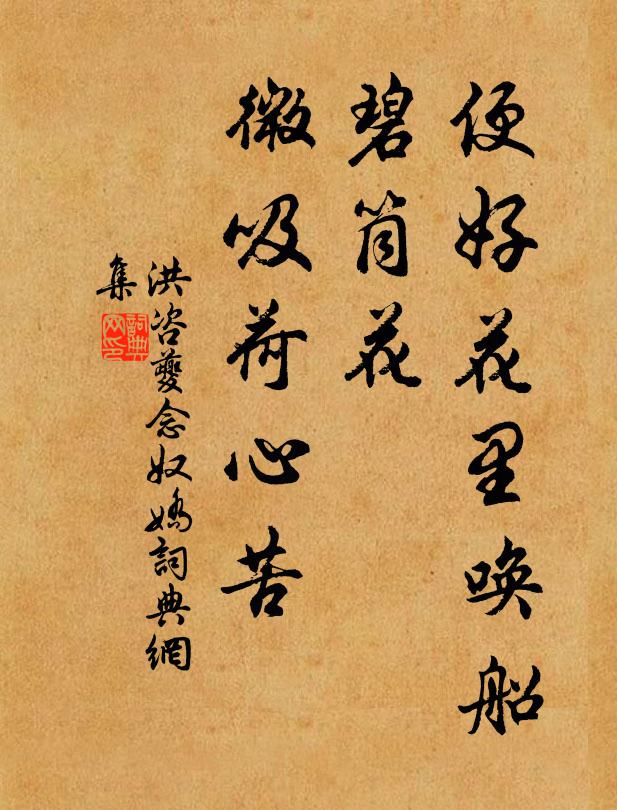 便好花里唤船
碧筒花
微吸荷心苦
洪咨夔念奴娇詞典網
集
詞典网印